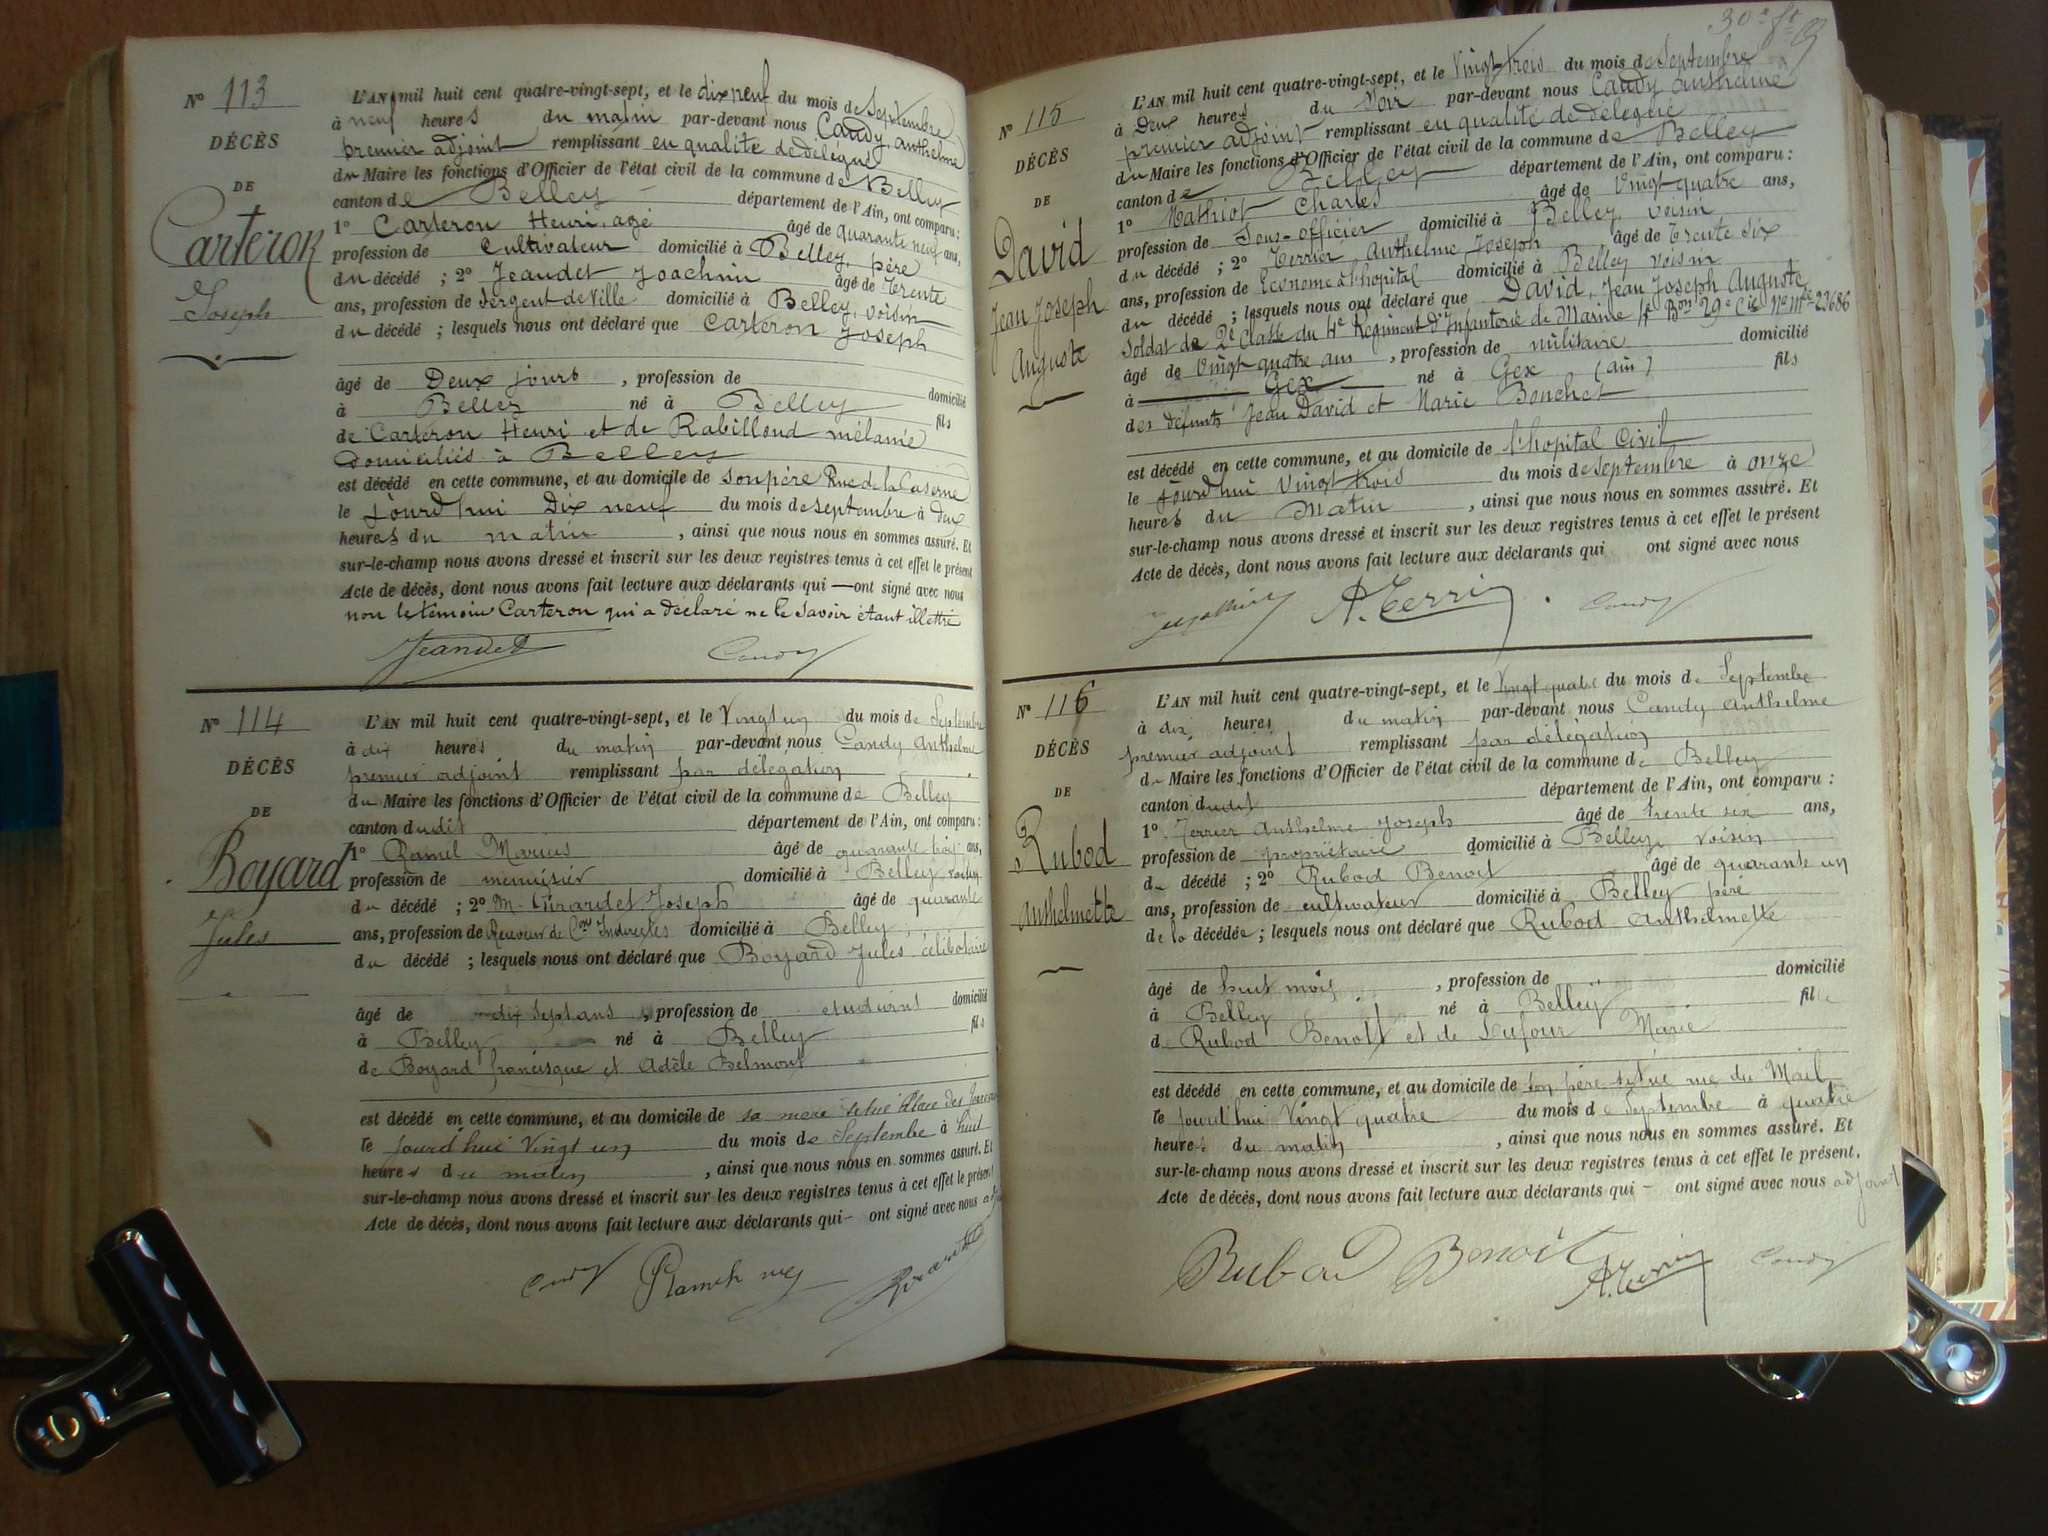 Nº 113
DÉCÈS
DE
Carteron
Joseph
L'AN mil huit cent quatre-vingt-sept, et le dix neuf du mois de Septembre
à neuf heures du matin par-devant nous Candy, Anthelme
premier adjoint remplissant en qualité de délégué
du Maire les fonctions d'Officier de l'état civil de la commune de Belley
canton de Belley département de l'Ain, ont comparu :
1º Carteron Henri, agé âgé de quarante neuf ans,
profession de Cultivateur domicilié à Belley, père
du décédé ; 2º Jeandet Joachim âgé de Trente
ans, profession de Sergent de Ville domicilié à Belley, voisin
du décédé ; lesquels nous ont déclaré que Carteron Joseph
âgé de Deux jours , profession de domicilié
à Belley né à Belley fils
de Carteron Henri et de Rabilloud mélanie
Domiciliés à Belley
est décédé en cette commune, et au domicile de son père Rue de la Caserne
le jourd'hui Dix neuf du mois de septembre à deux
heures du matin , ainsi que nous nous en sommes assuré. Et
sur-le-champ nous avons dressé et inscrit sur les deux registres tenus à cet effet le présent
Acte de décès, dont nous avons fait lecture aux déclarants qui — ont signé avec nous
non le témoin Carteron qui a déclaré ne le savoir étant illettré
Jeandet Candy
Nº 114
DÉCÈS
DE
Boyard
Jules
L'AN mil huit cent quatre-vingt-sept, et le Vingt un du mois de Septembre
à dix heures du matin par-devant nous Candy Anthelme
premier adjoint remplissant par délégation
du Maire les fonctions d'Officier de l'état civil de la commune de Belley
canton dudit département de l'Ain, ont comparu :
1º Ramel Marius âgé de quarante trois ans,
profession de menuisier domicilié à Belley voisin
du décédé ; 2º M. Girardet Joseph âgé de quarante
ans, profession de Receveur de Cons Indirectes domicilié à Belley
du décédé ; lesquels nous ont déclaré que Boyard Jules célibataire
âgé de dix sept ans , profession de etudiant domicilié
à Belley né à Belley fils
de Boyard francisque et Adèle Belmont
est décédé en cette commune, et au domicile de sa mère située Place des Terreaux
le jourd'hui Vingt un du mois de Septembre à huit
heures du matin , ainsi que nous nous en sommes assuré. Et
sur-le-champ nous avons dressé et inscrit sur les deux registres tenus à cet effet le présent
Acte de décès, dont nous avons fait lecture aux déclarants qui — ont signé avec nous
Candy
30e ft
Nº 115
DÉCÈS
DE
David
Jean Joseph
Auguste
L'AN mil huit cent quatre-vingt-sept, et le Vingt trois du mois de Septembre
à Deux heures du Soir par-devant nous Candy Anthelme
premier adjoint remplissant en qualité de délégué
du Maire les fonctions d'Officier de l'état civil de la commune de Belley
canton de Belley département de l'Ain, ont comparu :
1º Mathiot Charles âgé de Vingt quatre ans,
profession de Sous-officier domicilié à Belley, voisin
du décédé ; 2º Terrier Anthelme Joseph âgé de Trente Six
ans, profession de Econome à l'hopital domicilié à Belley voisin
du décédé ; lesquels nous ont déclaré que David, Jean Joseph Auguste
Soldat de 2e Classe du 4e Régiment D'Infanterie de Marine 4e Bon 29e Cie No Mle 23686
âgé de Vingt quatre ans , profession de militaire domicilié
à Gex né à Gex (ain) fils
des défunts Jean David et Marie Bonchet
est décédé en cette commune, et au domicile de l'hopital Civil
le jourd'hui Vingt trois du mois de septembre à onze
heures du Matin , ainsi que nous nous en sommes assuré. Et
sur-le-champ nous avons dressé et inscrit sur les deux registres tenus à cet effet le présent
Acte de décès, dont nous avons fait lecture aux déclarants qui ont signé avec nous
A. Terrier Candy
Nº 116
DÉCÈS
DE
Rubod
Anthelmette
L'AN mil huit cent quatre-vingt-sept, et le Vingt quatre du mois de Septembre
à dix heures du matin par-devant nous Candy Anthelme
premier adjoint remplissant par délégation
du Maire les fonctions d'Officier de l'état civil de la commune de Belley
canton dudit département de l'Ain, ont comparu :
1º Terrier Anthelme Joseph âgé de trente six ans,
profession de propriétaire domicilié à Belley, voisin
du décédé ; 2º Rubod Benoit âgé de quarante un
ans, profession de cultivateur domicilié à Belley père
de la décédée ; lesquels nous ont déclaré que Rubod Anthelmette
âgé de huit mois , profession de domicilié
à Belley né à Belley fille
de Rubod Benoit et de Dufour Marie
est décédé en cette commune, et au domicile de son père situé rue du Mail
le jourd'hui Vingt quatre du mois de Septembre à quatre
heures du matin , ainsi que nous nous en sommes assuré. Et
sur-le-champ nous avons dressé et inscrit sur les deux registres tenus à cet effet le présent.
Acte de décès, dont nous avons fait lecture aux déclarants qui — ont signé avec nous adjoint
Rubod Benoit A. Terrier Candy